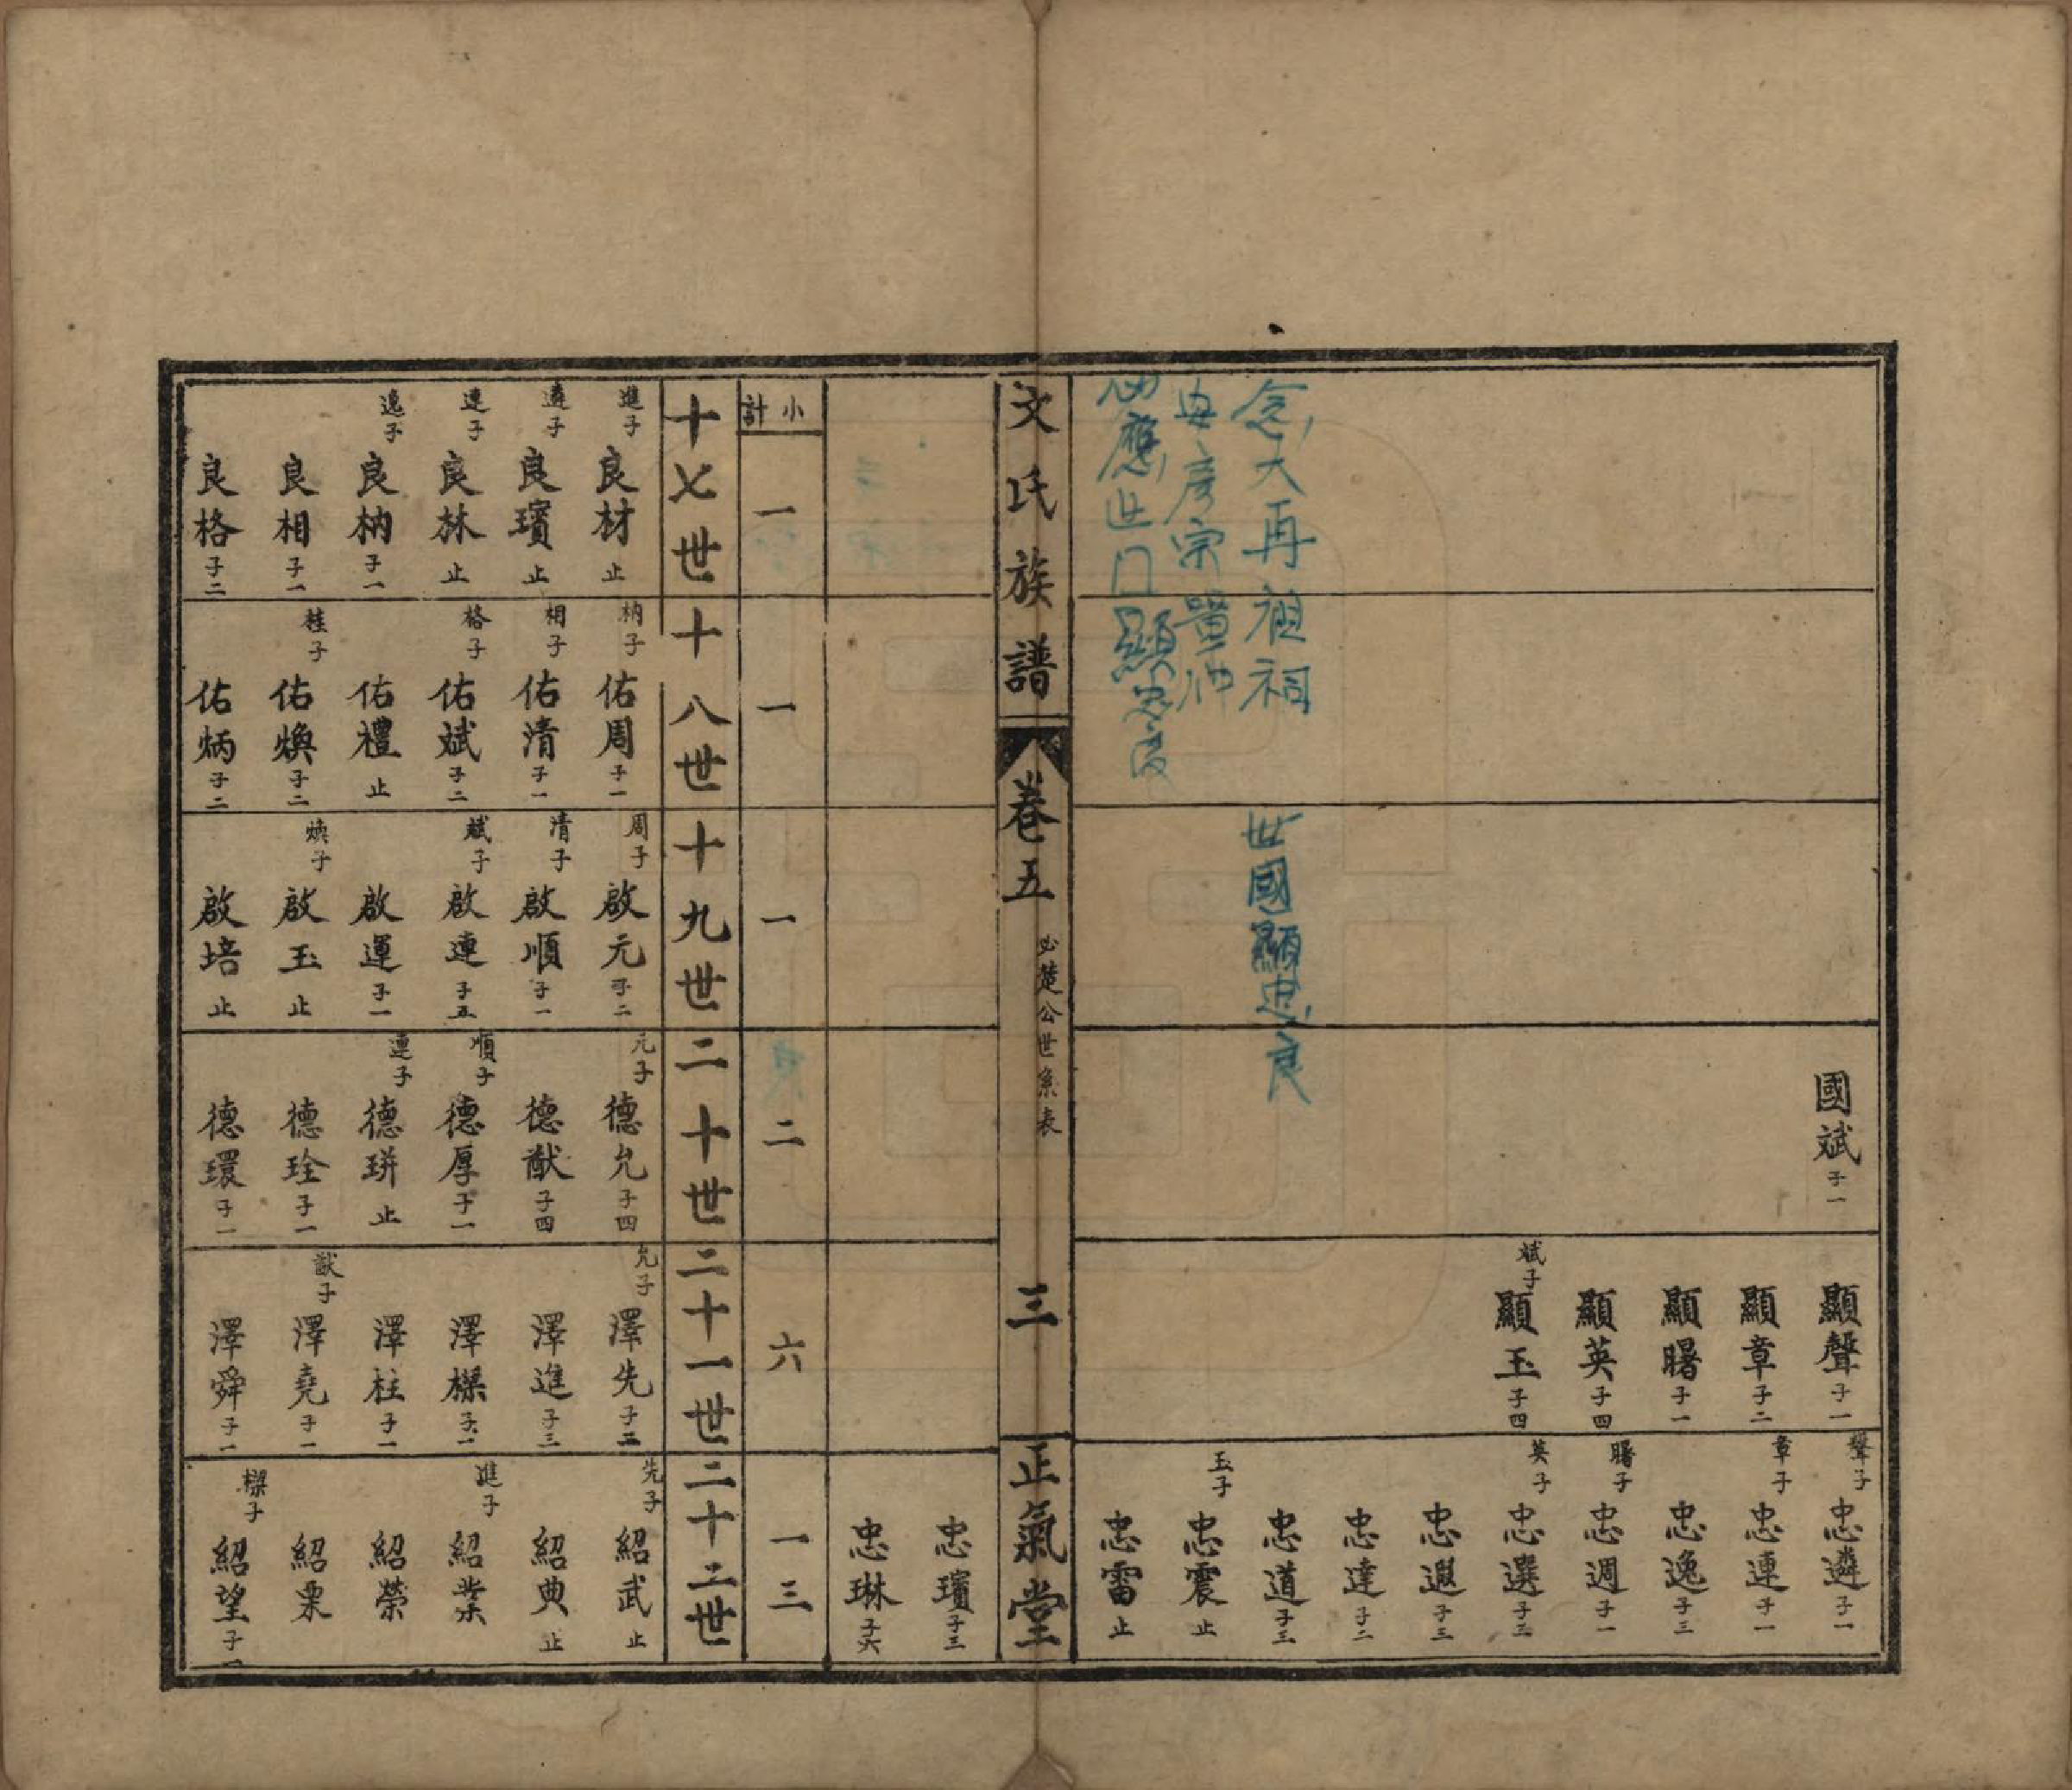 國斌子一
顯聲子一
顯章子二
顯曙子一
顯英子四
斌子
顯玉子四
聲子
忠遴子一
章子
忠連子一
忠逸子三
曙子
忠週子一
英子
忠選子三
忠遐子三
忠達子二
忠道子三
玉子
忠震止
忠雷止
念大再祖祠
彥宗
應
門顯忠
世國顯忠良
文氏族譜
卷五
必楚公世系表
三
正氣堂
忠璸子三
忠琳子六
小計
一
一
一
二
六
一三
十七世
進子
良材止
遴子
良璸止
連子
良林止
逸子
良枘子一
良相子一
良格子二
十八世
枘子
佑周子一
相子
佑清子一
格子
佑斌子二
佑禮止
桂子
佑煥子二
佑炳子二
十九世
周子
啟元子二
清子
啟順子一
斌子
啟連子五
啟運子一
煥子
啟玉止
啟培止
二十世
元子
德允子四
德猷子四
順子
德厚子一
連子
德琪止
德珍子一
德環子一
二十一世
允子
澤先子二
澤進子三
澤樑子一
澤柱子一
猷子
澤堯子一
澤舜子一
二十二世
先子
紹武止
紹典止
進子
紹業
紹榮
紹栗
樑子
紹望子一